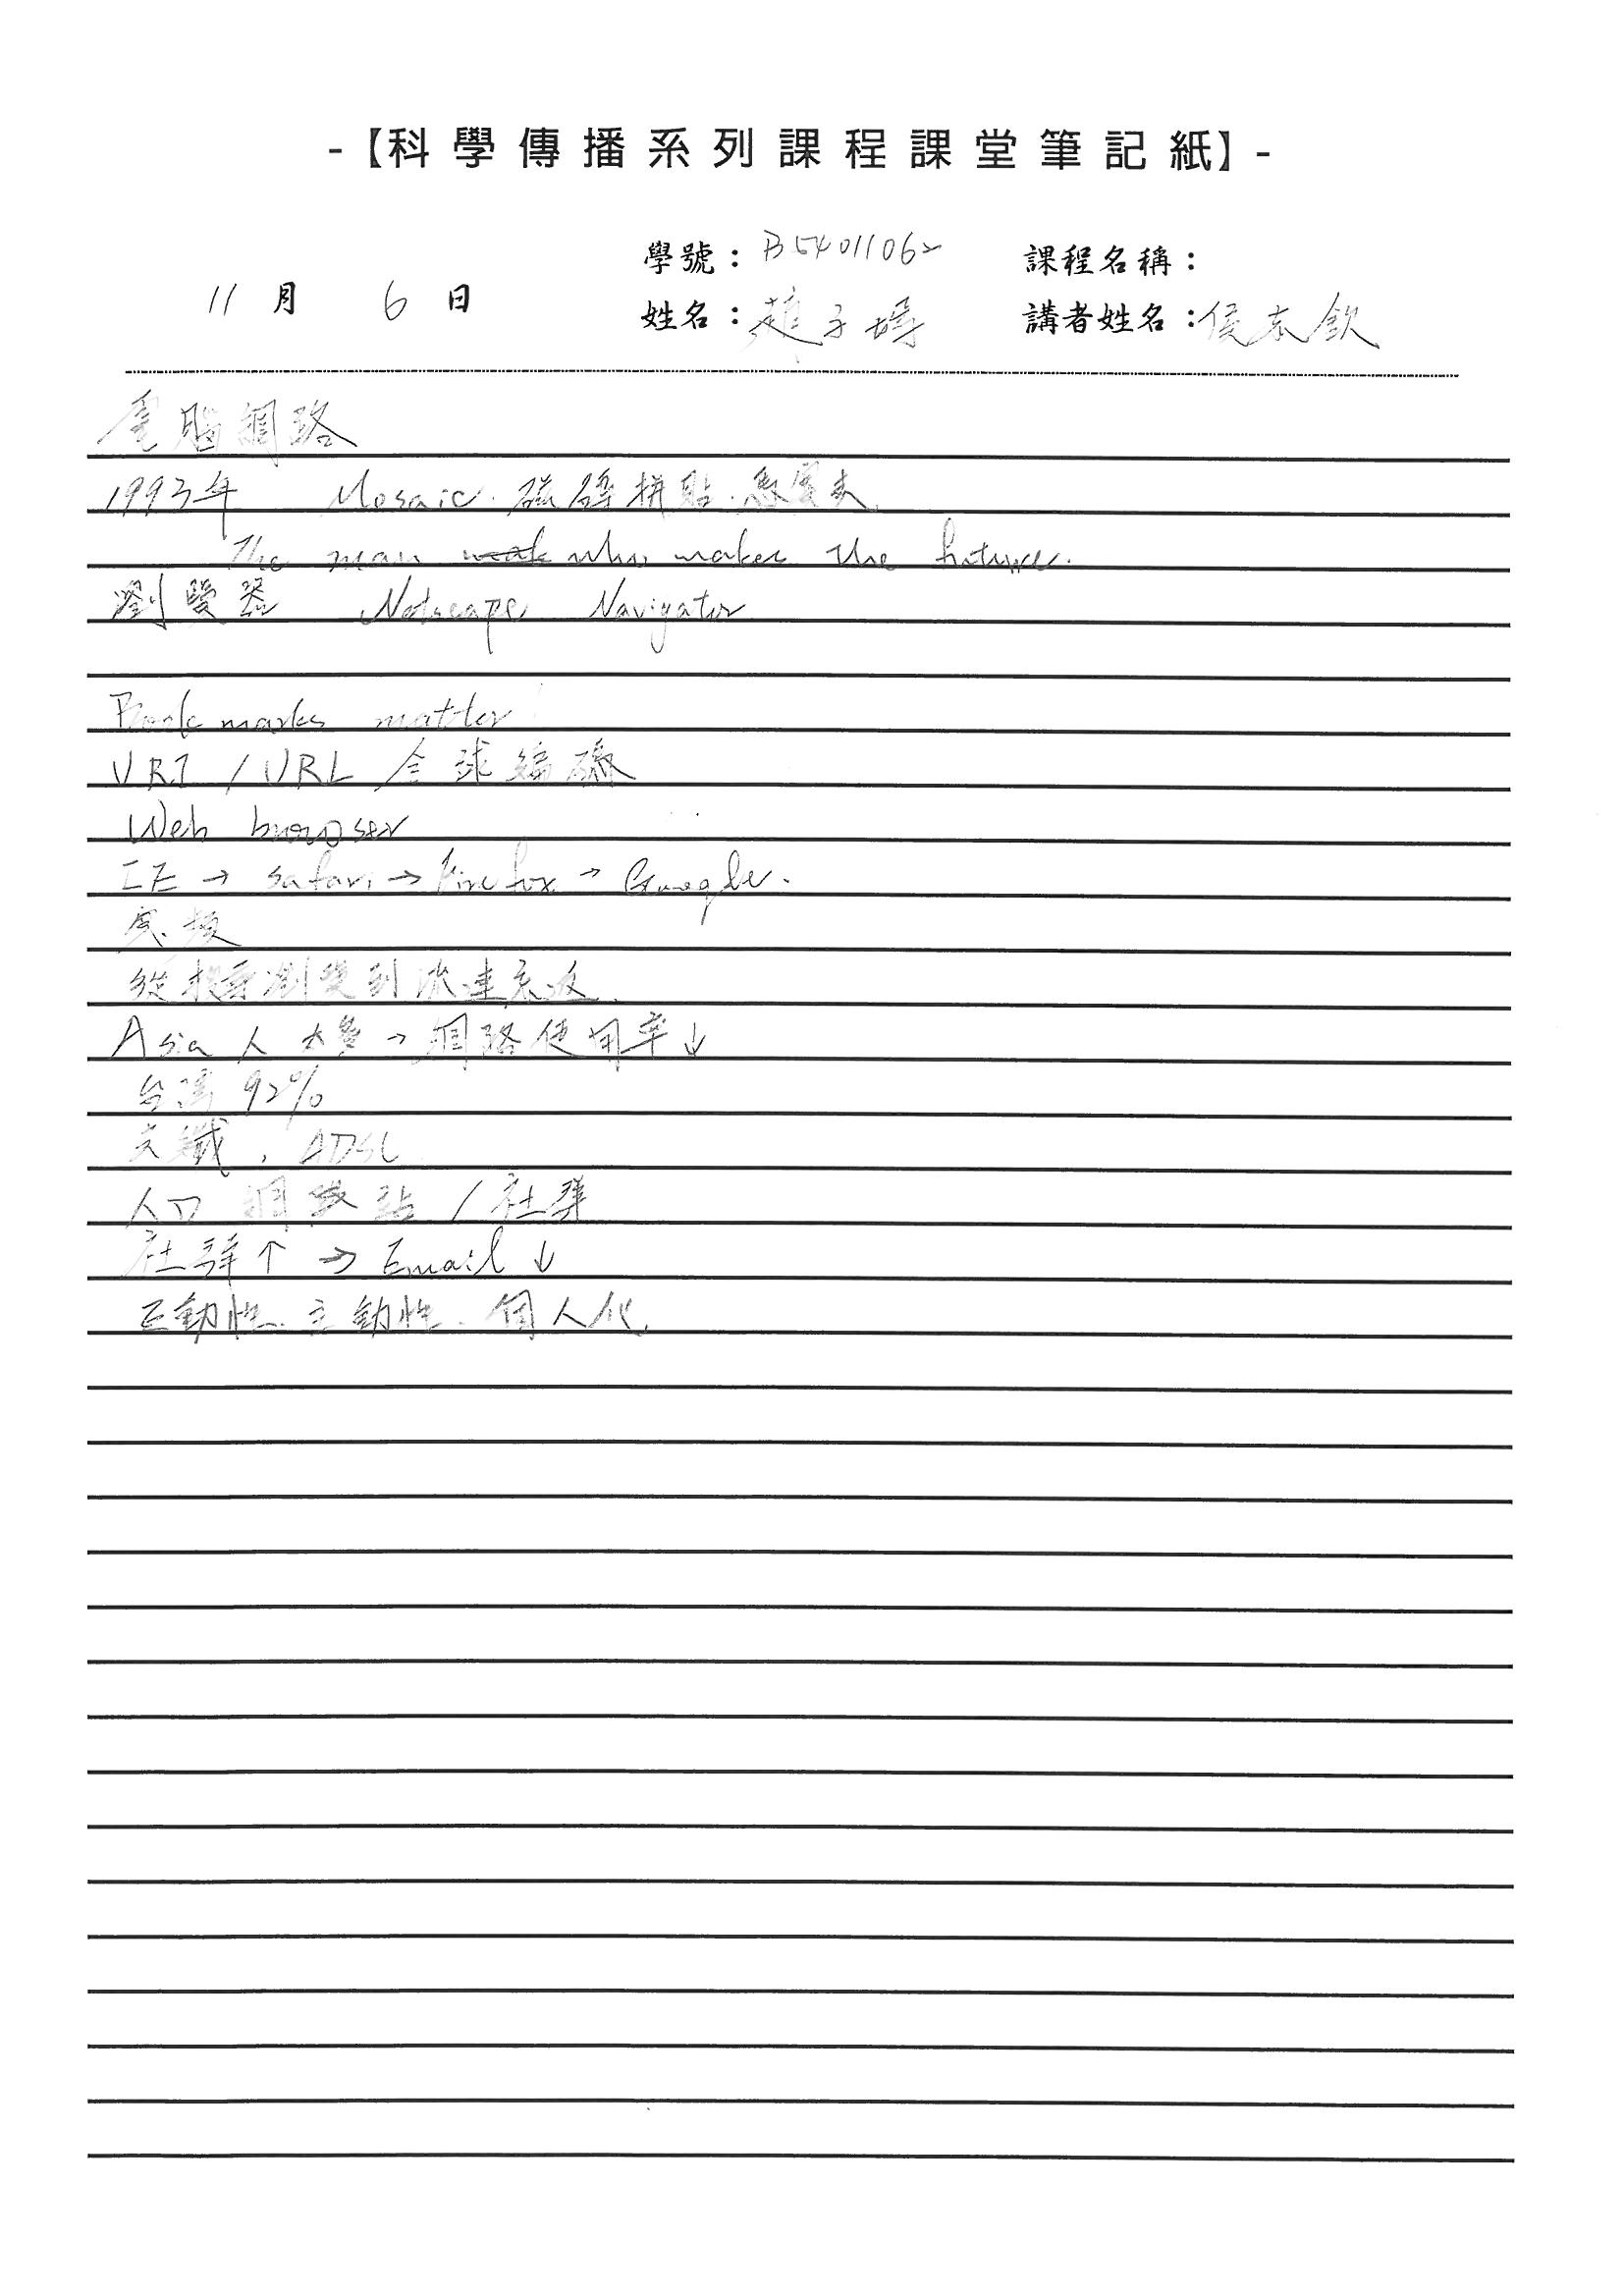 -【科學傳播系列課程課堂筆記紙】-
學號：B54011062 課程名稱：
11 月 6 日 姓名：趙子 講者姓名：侯志欽
電腦網路
1993年 Mosaic. 磁磚拼貼.馬賽克
The man who makes the future.
瀏覽器 Netscape Navigator
Bookmarks matter!
URI / URL 全球編碼
Web browser
IE → safari → Firefox → Google.
從搜尋瀏覽到流連忘返.
Asia 人太多 → 網路使用率↓
台灣 92%
光纖, ADSL
入口網站 / 社群
社群↑ → Email ↓
互動性. 主動性. 個人化.